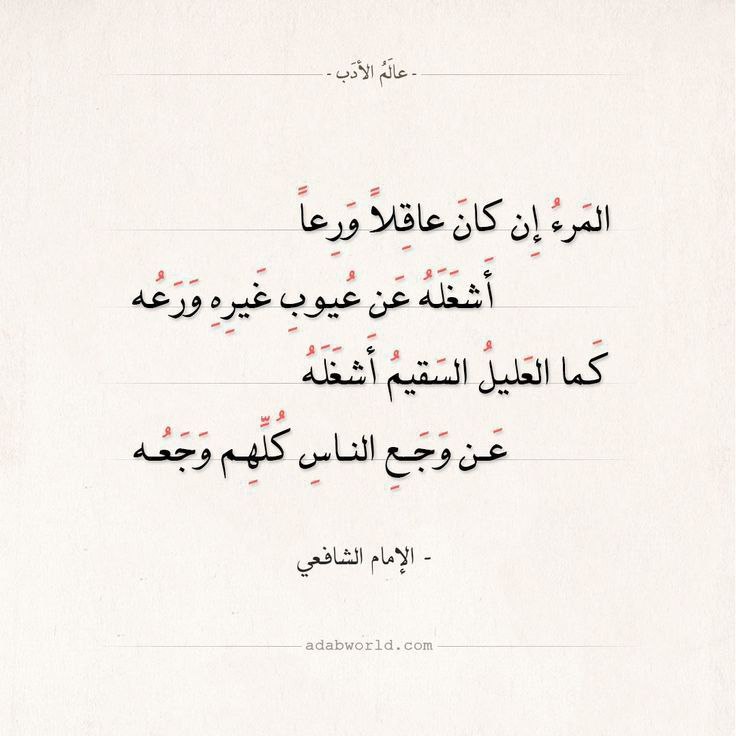 - عالَمُ الأدَب -
المَرءُ إِن كانَ عاقِلاً وَرِعاً
أَشغَلَهُ عَن عُيوبِ غَيرِهِ وَرَعُه
كَما العَليلُ السَقيمُ أَشغَلَهُ
عَـن وَجَـعِ النـاسِ كُلِّهِـم وَجَعُـه
- الإمام الشافعي
adabworld.com